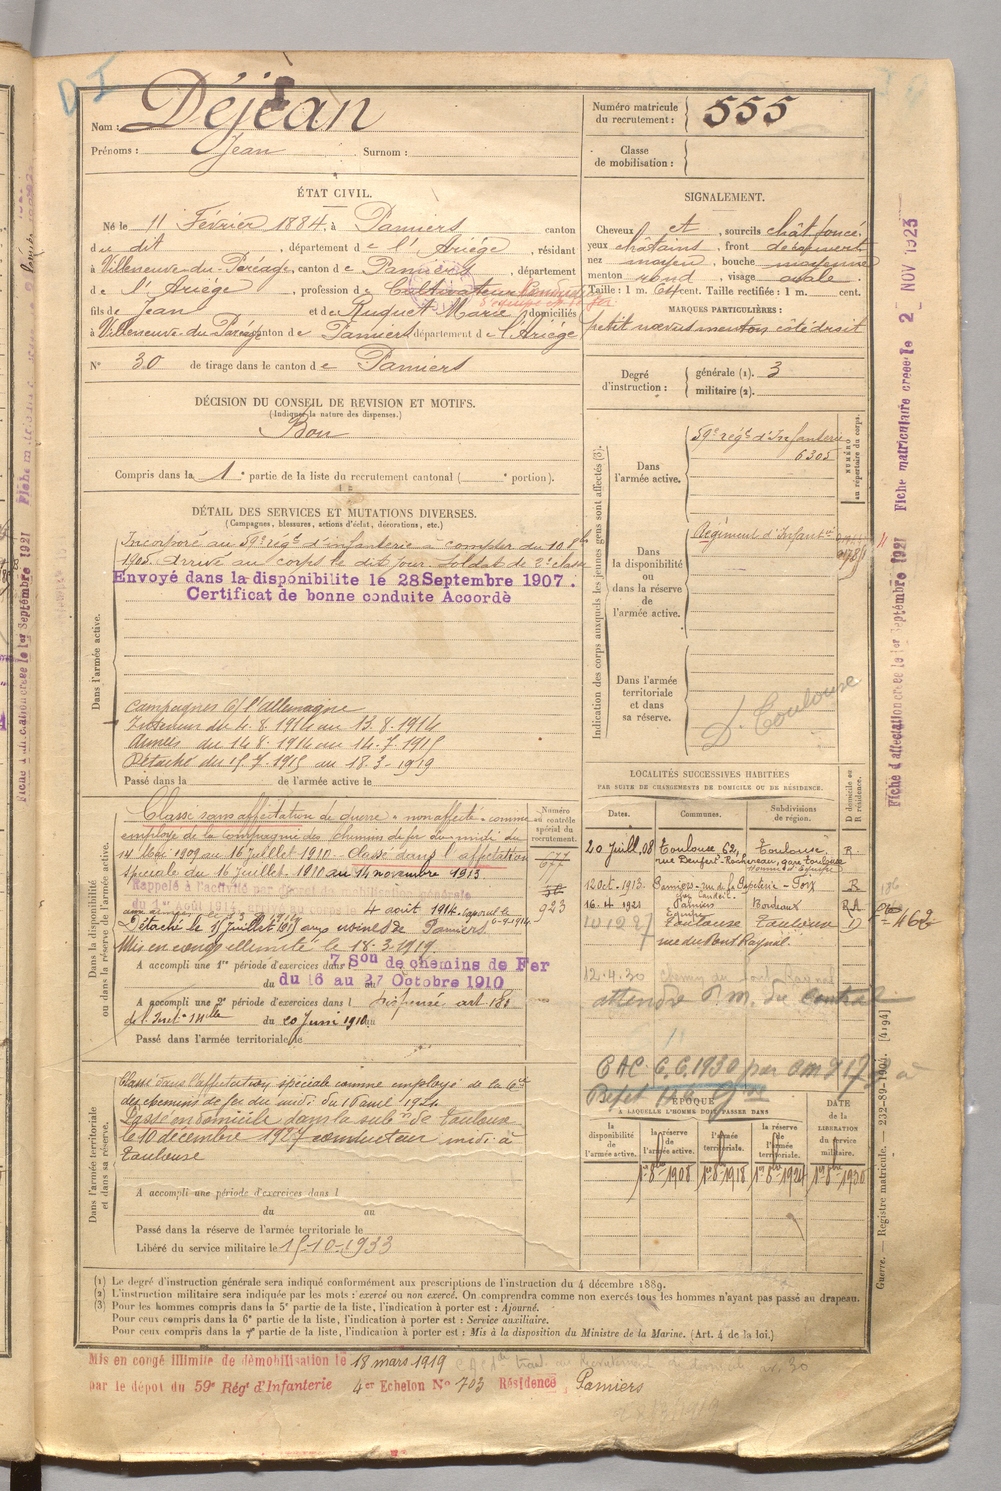 D I
Nom : Déjean
Prénoms : Jean Surnom :
Numéro matricule du recrutement : 555
Classe de mobilisation :
ÉTAT CIVIL.
Né le 11 Février 1884, à Pamiers canton
du dit, département de l'Ariège, résidant
à Villeneuve-du-Paréage, canton de Pamiers, département
de l'Ariège, profession de Cultivateur
fils de Jean et de Ruquet Marie, domiciliés
à Villeneuve du Paréage canton de Pamiers département de l'Ariège
N° 30 de tirage dans le canton de Pamiers
SIGNALEMENT.
Cheveux et, sourcils chât foncé
yeux châtains, front découvert
nez moyen, bouche moyenne
menton rond, visage ovale
Taille : 1 m. cent. Taille rectifiée : 1 m. cent.
MARQUES PARTICULIÈRES :
petit nævus menton côté droit
Degré d'instruction : générale (1). 3
militaire (2).
DÉCISION DU CONSEIL DE REVISION ET MOTIFS.
(Indiquer la nature des dispenses.)
Bon
Compris dans la 1e partie de la liste du recrutement cantonal ( e portion).
DÉTAIL DES SERVICES ET MUTATIONS DIVERSES.
(Campagnes, blessures, actions d'éclat, décorations, etc.)
Dans l'armée active.
Incorporé au 59e régt d'infanterie à compter du 10 8bre
1905. Arrivé au corps le dit jour. Soldat de 2e classe
Envoyé dans la disponibilite le 28 Septembre 1907.
Certificat de bonne conduite Accordé
Campagnes c/ l'Allemagne
Intérieur du 4.8.1914 au 13.8.1914
Armées du 14.8.1914 au 14.7.1915
Détaché du 15.7.1915 au 18.3.1919
Passé dans la de l'armée active le
Indication des corps auxquels les jeunes gens sont affectés (3).
NUMÉRO au répertoire du corps.
Dans l'armée active.
59e régt d'Infanterie
6305
Dans la disponibilité ou dans la réserve de l'armée active.
Régiment d'Infantie
Dans l'armée territoriale et dans sa réserve.
D. Toulouse
Dans la disponibilité ou dans la réserve de l'armée active.
Numéro au contrôle spécial du recrutement.
Classé sans affectation de guerre "non affecté" comme
employé de la compagnie des chemins de fer du midi du
14 Mai 1909 au 16 Juillet 1910 - Classé dans l'affectation
spéciale du 16 Juillet 1910 au 14 novembre 1913
Rappelé à l'activité par décret de mobilisation générale
du 1er Août 1914 corps le 4 août 1914. caporal le
6-9-1914
Détaché le 15 Juillet 1915 aux usines de Pamiers
Mis en congé illimité le 18.3.1919
677
923
A accompli une 1re période d'exercices dans 7 Son de chemins de Fer
du 16 au 27 Octobre 1910
A accompli une 2e période d'exercices dans l Dispensé art. 18
de l'Inst. du 20 Juin 1910 au
Passé dans l'armée territoriale le
LOCALITÉS SUCCESSIVES HABITÉES
PAR SUITE DE CHANGEMENTS DE DOMICILE OU DE RÉSIDENCE.
Dates. Communes. Subdivisions de région. D domicile ou R résidence.
20 Juill. 08 Toulouse 62, Toulouse R.
rue Denfert-Rochereau, gare Toulouse
12 Oct. 1913. Pamiers - rue de la Foix R
16.4.1921 Pamiers Bordeaux R.A
10 12 27 Toulouse Toulouse D
rue du Pont Raynal
12.4.30 chemin du
attendre
462
CAC 6.6.1930 par
Dans l'armée territoriale et dans sa réserve.
Classé dans l'affectation spéciale comme employé de la Cie
des chemins de fer du midi du 1er avril 1924
Passé en domicile dans la subon de Toulouse
le 10 décembre 1927 conducteur midi à
Toulouse
A accompli une période d'exercices dans l
du au
Passé dans la réserve de l'armée territoriale le
Libéré du service militaire le 15-10-1933
ÉPOQUE
À LAQUELLE L'HOMME DOIT PASSER DANS
DATE de la LIBÉRATION du service militaire.
la disponibilité de l'armée active. la réserve de l'armée active. l'armée territoriale. la réserve de l'armée territoriale.
1er 8bre 1908 1er 8bre 1918 1er 8bre 1924 1er 8bre 1930
(1) Le degré d'instruction générale sera indiqué conformément aux prescriptions de l'instruction du 4 décembre 1889.
(2) L'instruction militaire sera indiquée par les mots : exercé ou non exercé. On comprendra comme non exercés tous les hommes n'ayant pas passé au drapeau.
(3) Pour les hommes compris dans la 5e partie de la liste, l'indication à porter est : Ajourné.
Pour ceux compris dans la 6e partie de la liste, l'indication à porter est : Service auxiliaire.
Pour ceux compris dans la 7e partie de la liste, l'indication à porter est : Mis à la disposition du Ministre de la Marine. (Art. 4 de la loi.)
Mis en congé illimité de démobilisation le 18 mars 1919
par le dépot du 59e Régt d'Infanterie 4er Echelon No 703 Résidence, Pamiers
Fiche d'affectation créée le 1er Septembre 1921
Fiche matriculaire créée le 2 NOV 1923
Guerre. — Registre matricule. — 232-89-1904. [4194]